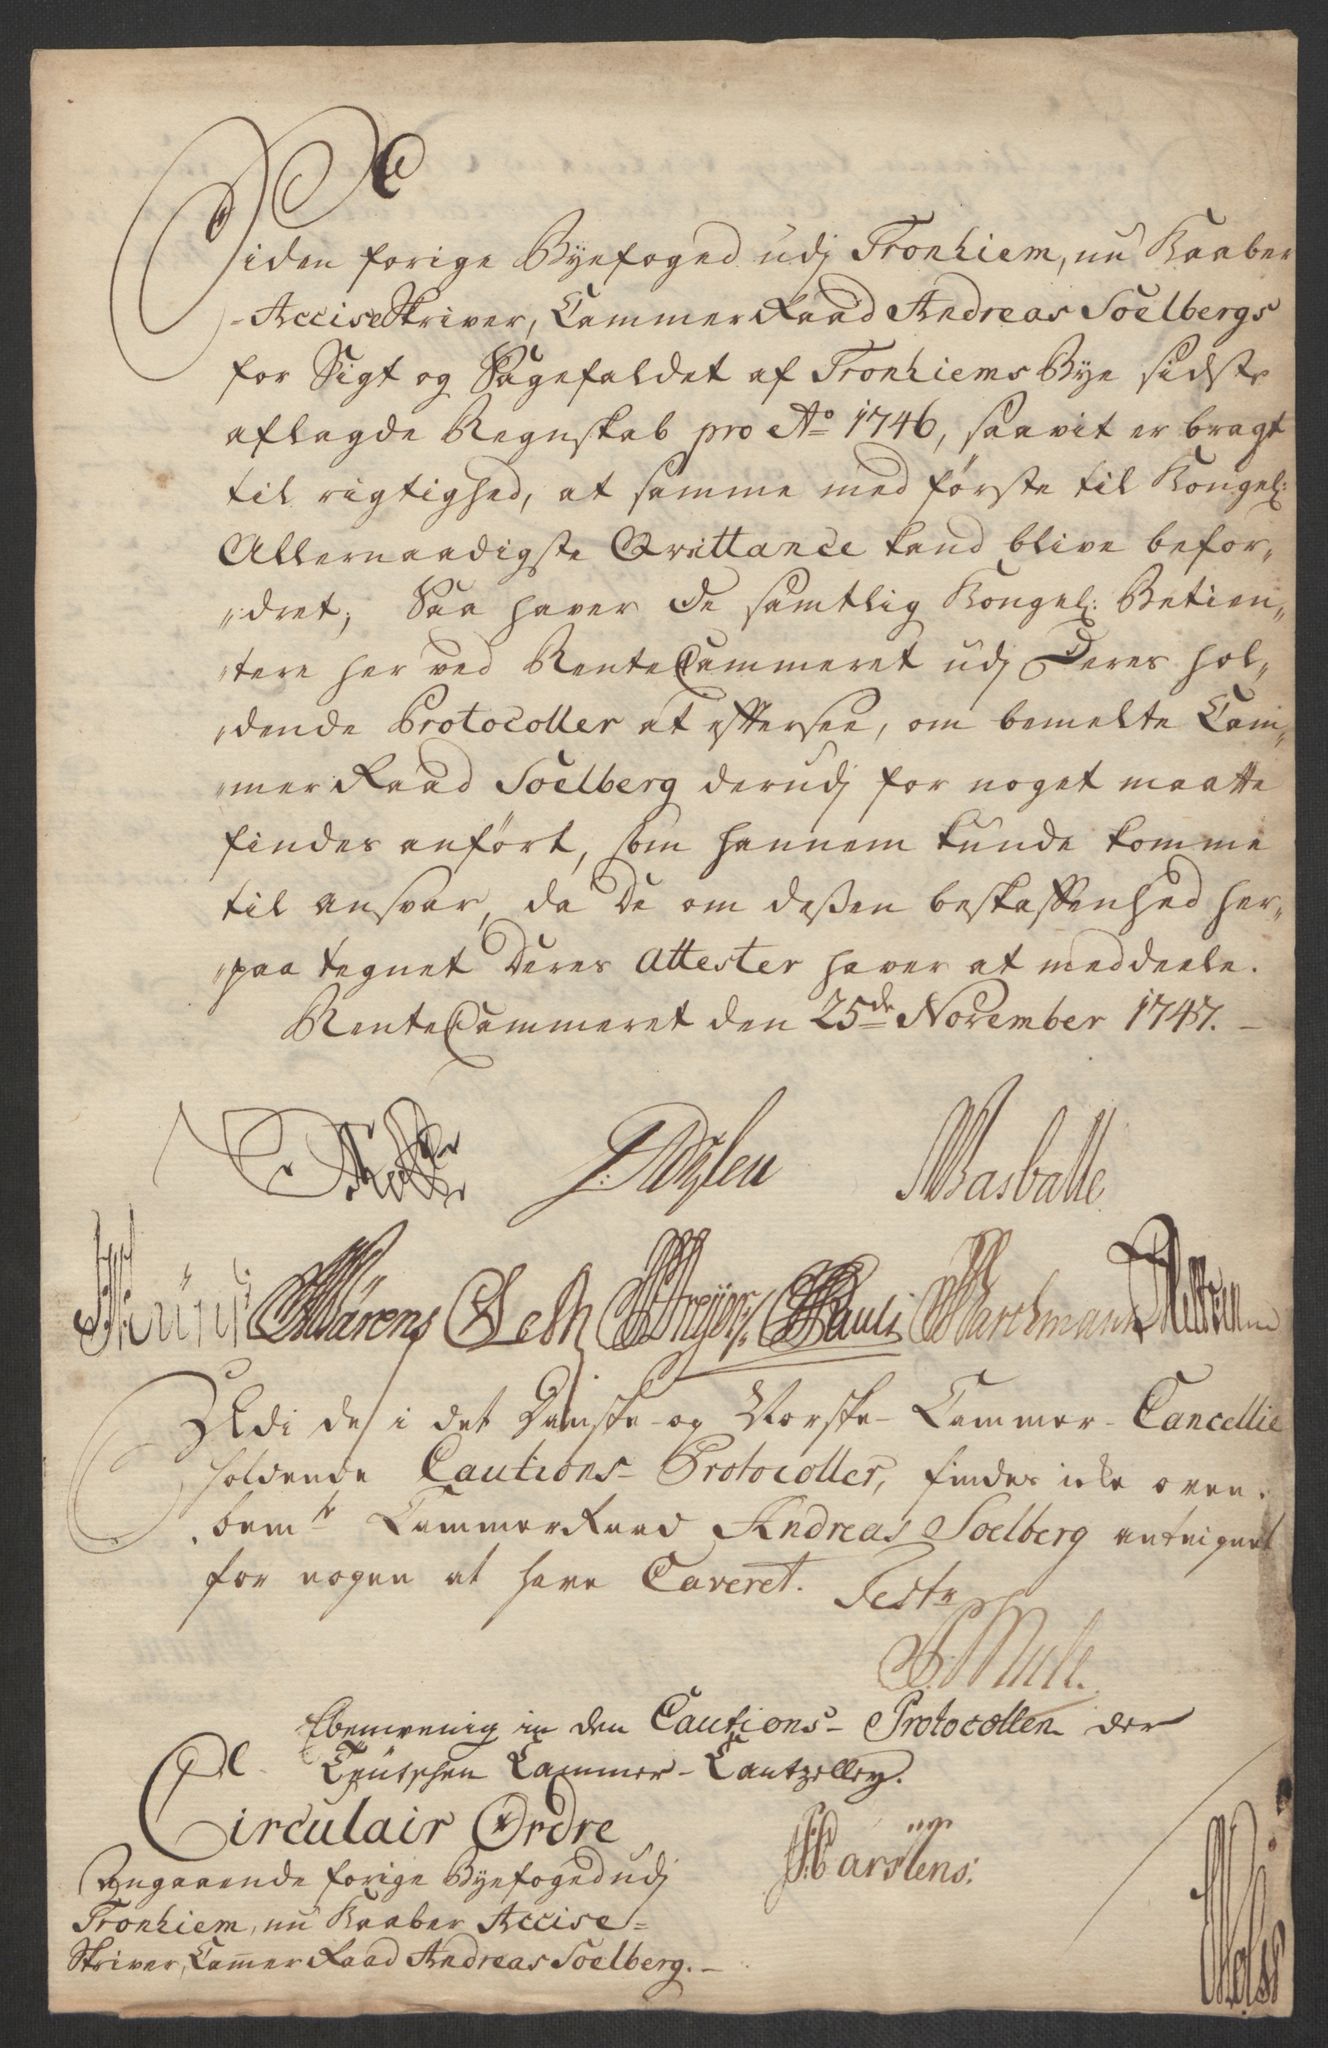 Siden forige Byefoged udj Tronhiem, nu Kaaber
-Accise Skriver, Cammer Raad Andreas Soelbergs
for Sigt og Sagefaldet af Tronhiems Bye sidste
aflagde Regnskab pro Ao 1746, saavit er bragt
til rigtighed, at samme med første til Kongel:
Allernaadigste Qvittance kand blive befor„
„dret; Saa haver De samtlig Kongel: Betien„
„tere her ved RenteCammeret udj Deres hol„
„dende Protocoller at eftersee, om bemelte Cam„
„mer Raad Soelberg derudj for noget maatte
findes anført, som hannem kunde komme
til ansvar, da De om deßen beskaffenhed her„
„paa tegnet Deres Attester haver at meddeele.
RenteCammeret den 25de November 1747.
Wasballe
Wärens Leth Dreyer Pauli Marckmann
Udi de i det Danske- og Norske- Cammer- Cancellie
holdende Cautions- Protocoller, findes icke oven-
bemte Cammer Raad Andreas Soelberg anteignet
for nogen at have Caveret. Testr
Mule.
Ebenwenig in den Cautions- Protocollen der
Teütschen Cammer-Cantzelley.
Circulair Ordre
Angaaende forige Byefoged udj
Tronhiem, nu Kaaber Accise-
Skriver, Cammer Raad Andreas Soelberg.-
Carstens.